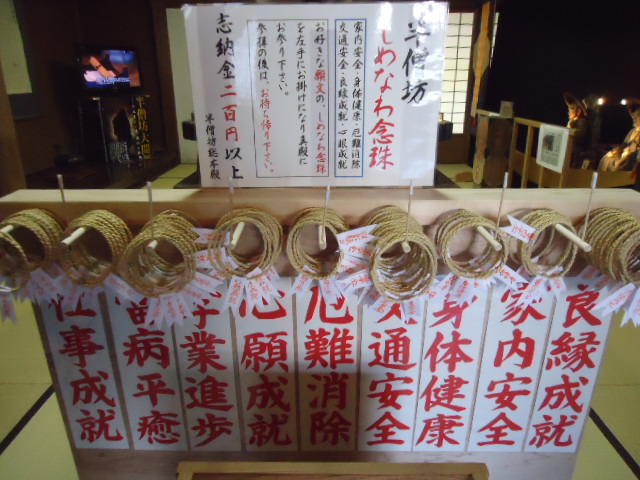 半僧坊
しめなわ念珠
家内安全・身体健康・厄難消除
交通安全・良縁成就・心願成就
お好きな願文の、しめなわ念珠
を左手にお掛けになり真殿に
お参り下さい。
参拝の後は、お持ち帰り下さい。
志納金二百円以上
半僧坊総本殿
良縁成就
家内安全
身体健康
交通安全
厄難消除
心願成就
学業進歩
当病平癒
仕事成就